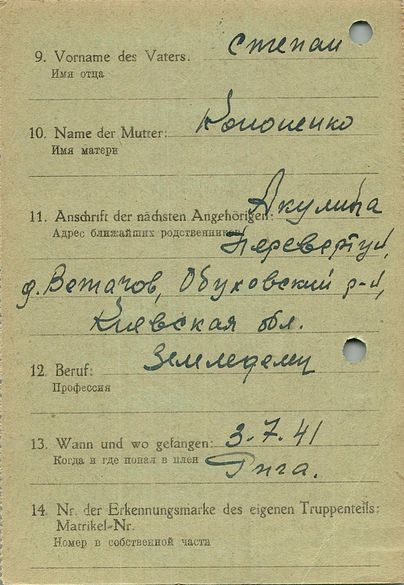 9. Vorname des Vaters: Степан
Имя отца
10. Name der Mutter: Кононенко
Имя матери
11. Anschrift der nächsten Angehörigen: Акулина
Адрес ближайших родственников
Перевертун,
д. Ветачов, Обуховский р-н,
Киевская обл.
12. Beruf: Земледелец
Профессия
13. Wann und wo gefangen: 3.7.41
Когда и где попал в плен
Рига.
14. Nr. der Erkennungsmarke des eigenen Truppenteils:
Matrikel-Nr.
Номер в собственной части